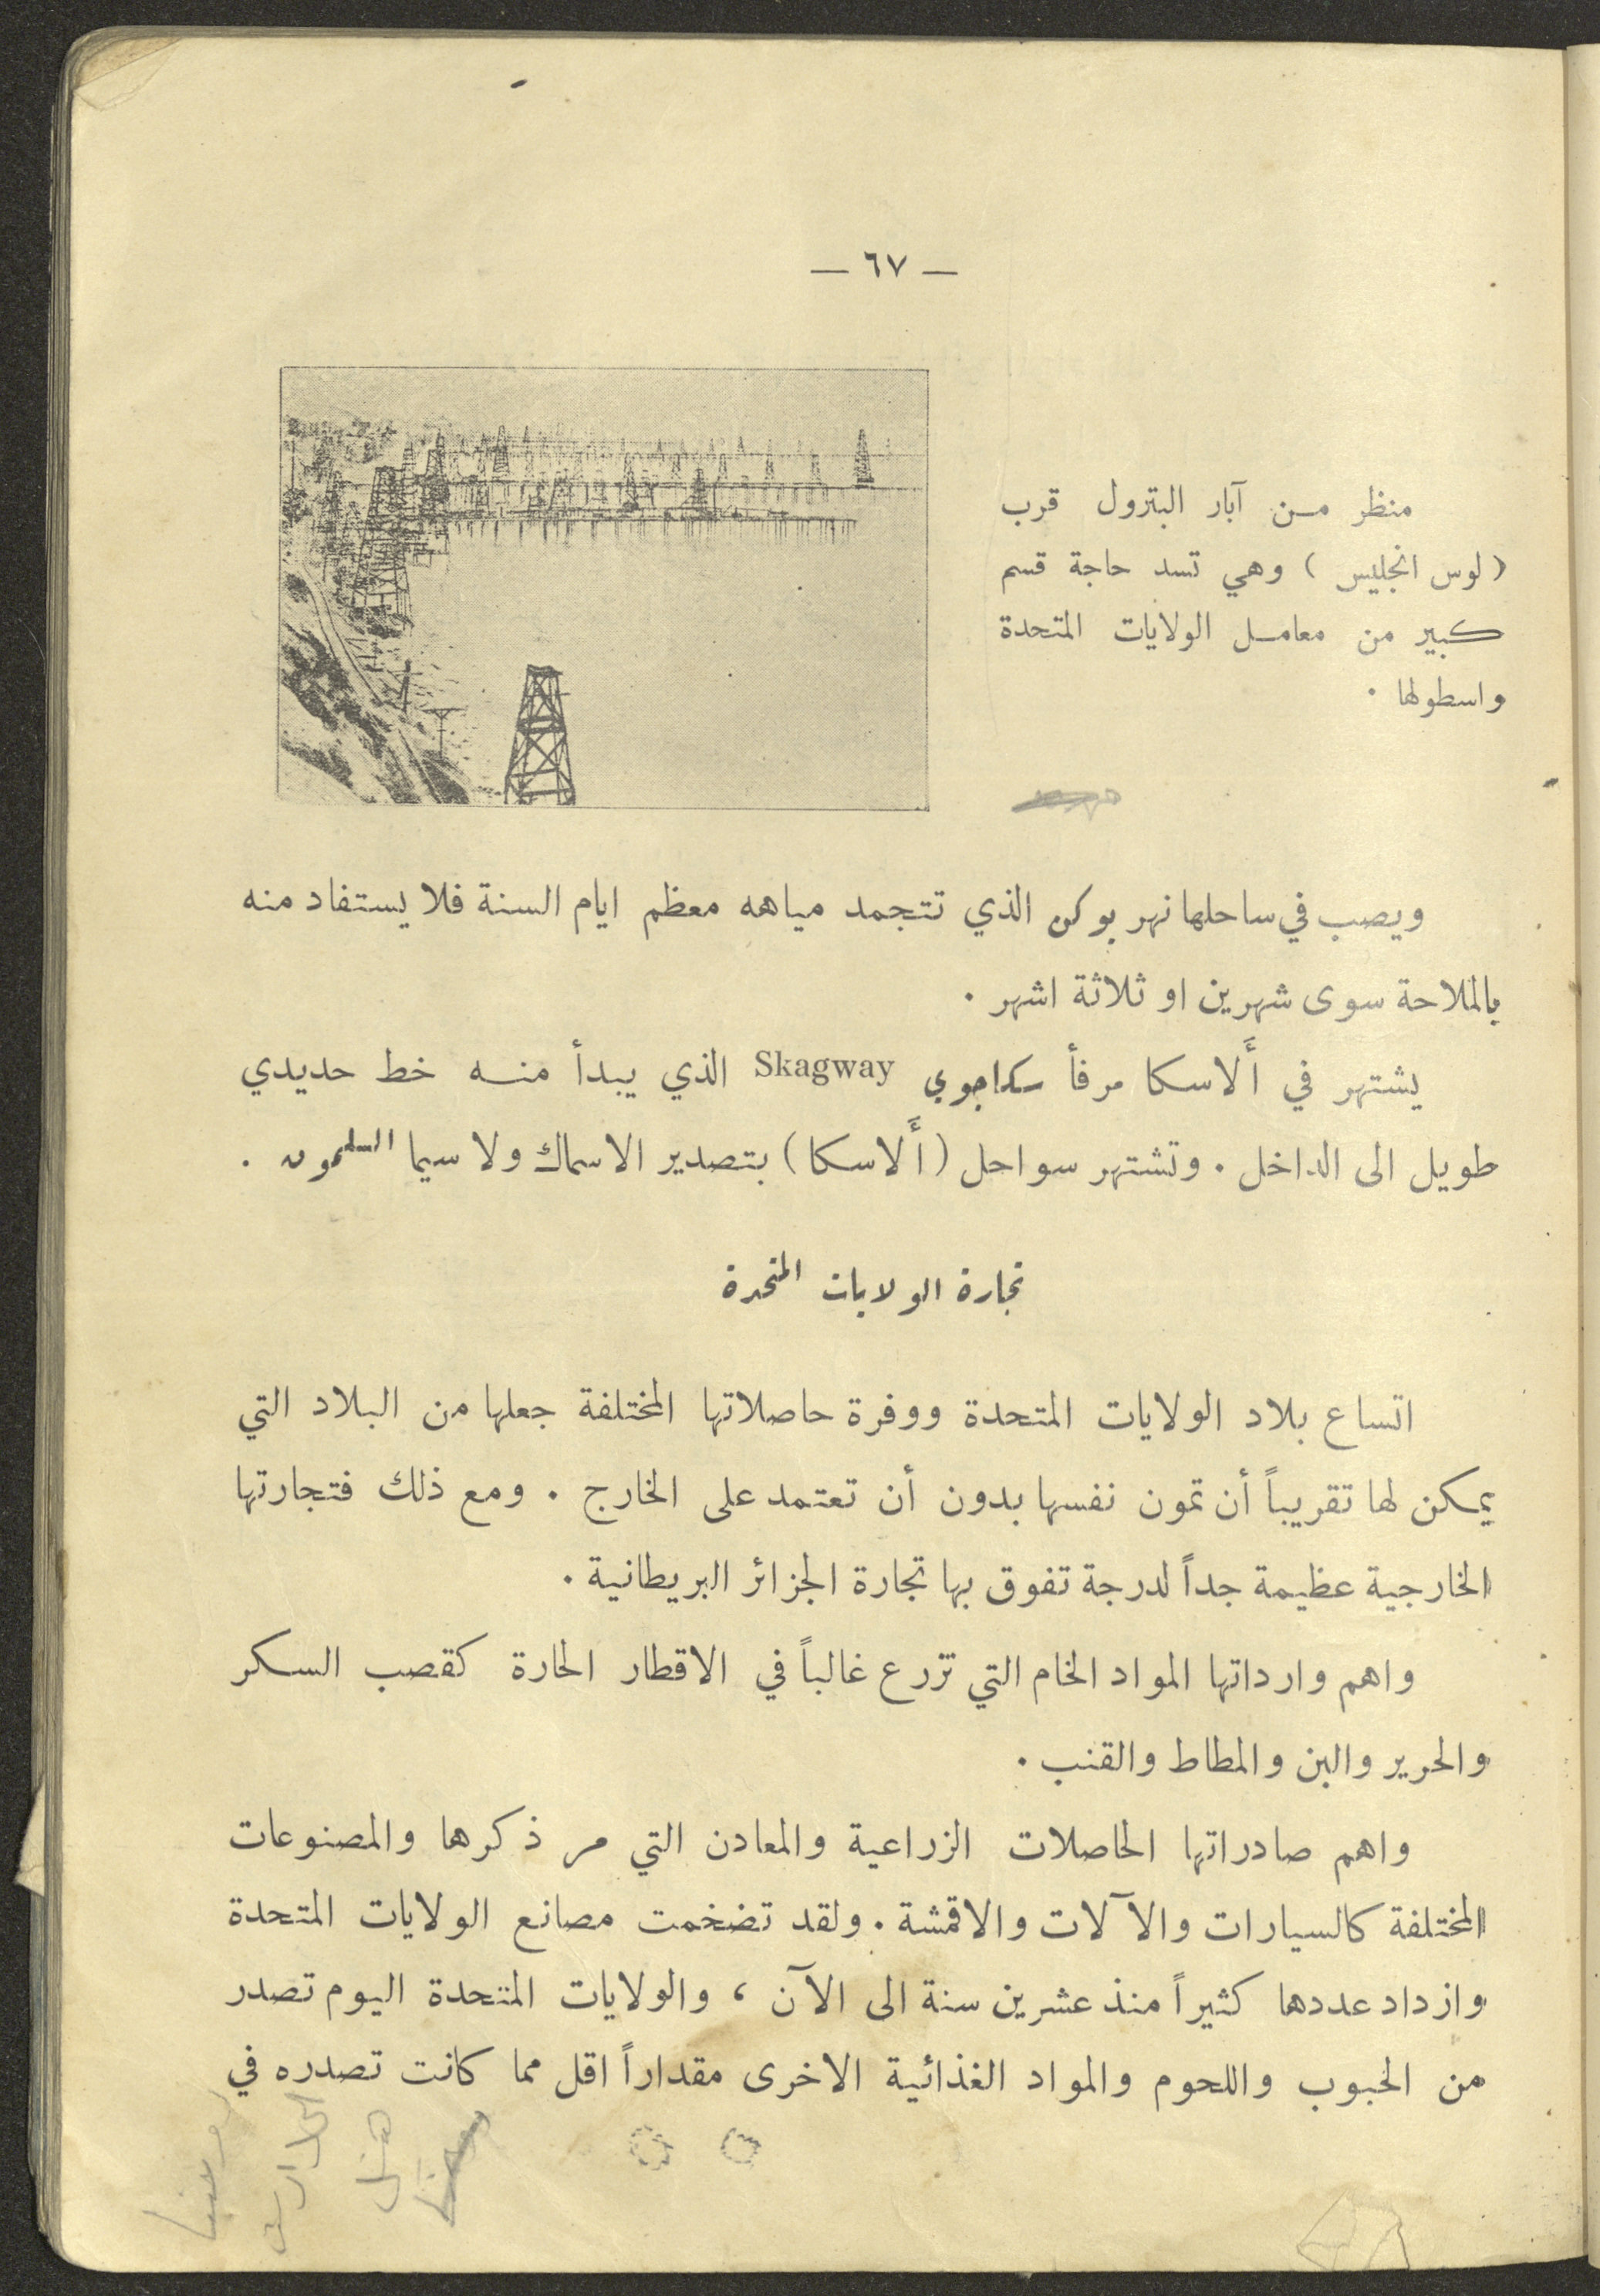 — ٦٧ —
منظر من آبار البترول قرب
( لوس انجليس ) وهي تسد حاجة قسم
كبير من معامل الولايات المتحدة
واسطولها .
ويصب في ساحلها نهر يوكن الذي تتجمد مياهه معظم ايام السنة فلا يستفاد منه
بالملاحة سوى شهرين او ثلاثة اشهر .
يشتهر في أَلاسكا مرفأ سكاجوي Skagway الذي يبدأ منه خط حديدي
طويل الى الداخل . وتشتهر سواحل (أَلاسكا) بتصدير الاسماك ولا سيما السلمون .
تجارة الولايات المتحدة
اتساع بلاد الولايات المتحدة ووفرة حاصلاتها المختلفة جعلها من البلاد التي
يمكن لها تقريباً أن تمون نفسها بدون أن تعتمد على الخارج . ومع ذلك فتجارتها
الخارجية عظيمة جداً لدرجة تفوق بها تجارة الجزائر البريطانية .
واهم وارداتها المواد الخام التي تزرع غالباً في الاقطار الحارة كقصب السكر
والحرير والبن والمطاط والقنب .
واهم صادراتها الحاصلات الزراعية والمعادن التي مر ذكرها والمصنوعات
المختلفة كالسيارات والآلات والاقمشة . ولقد تضخمت مصانع الولايات المتحدة
وازداد عددها كثيراً منذ عشرين سنة الى الآن ، والولايات المتحدة اليوم تصدر
من الحبوب واللحوم والمواد الغذائية الاخرى مقداراً اقل مما كانت تصدره في